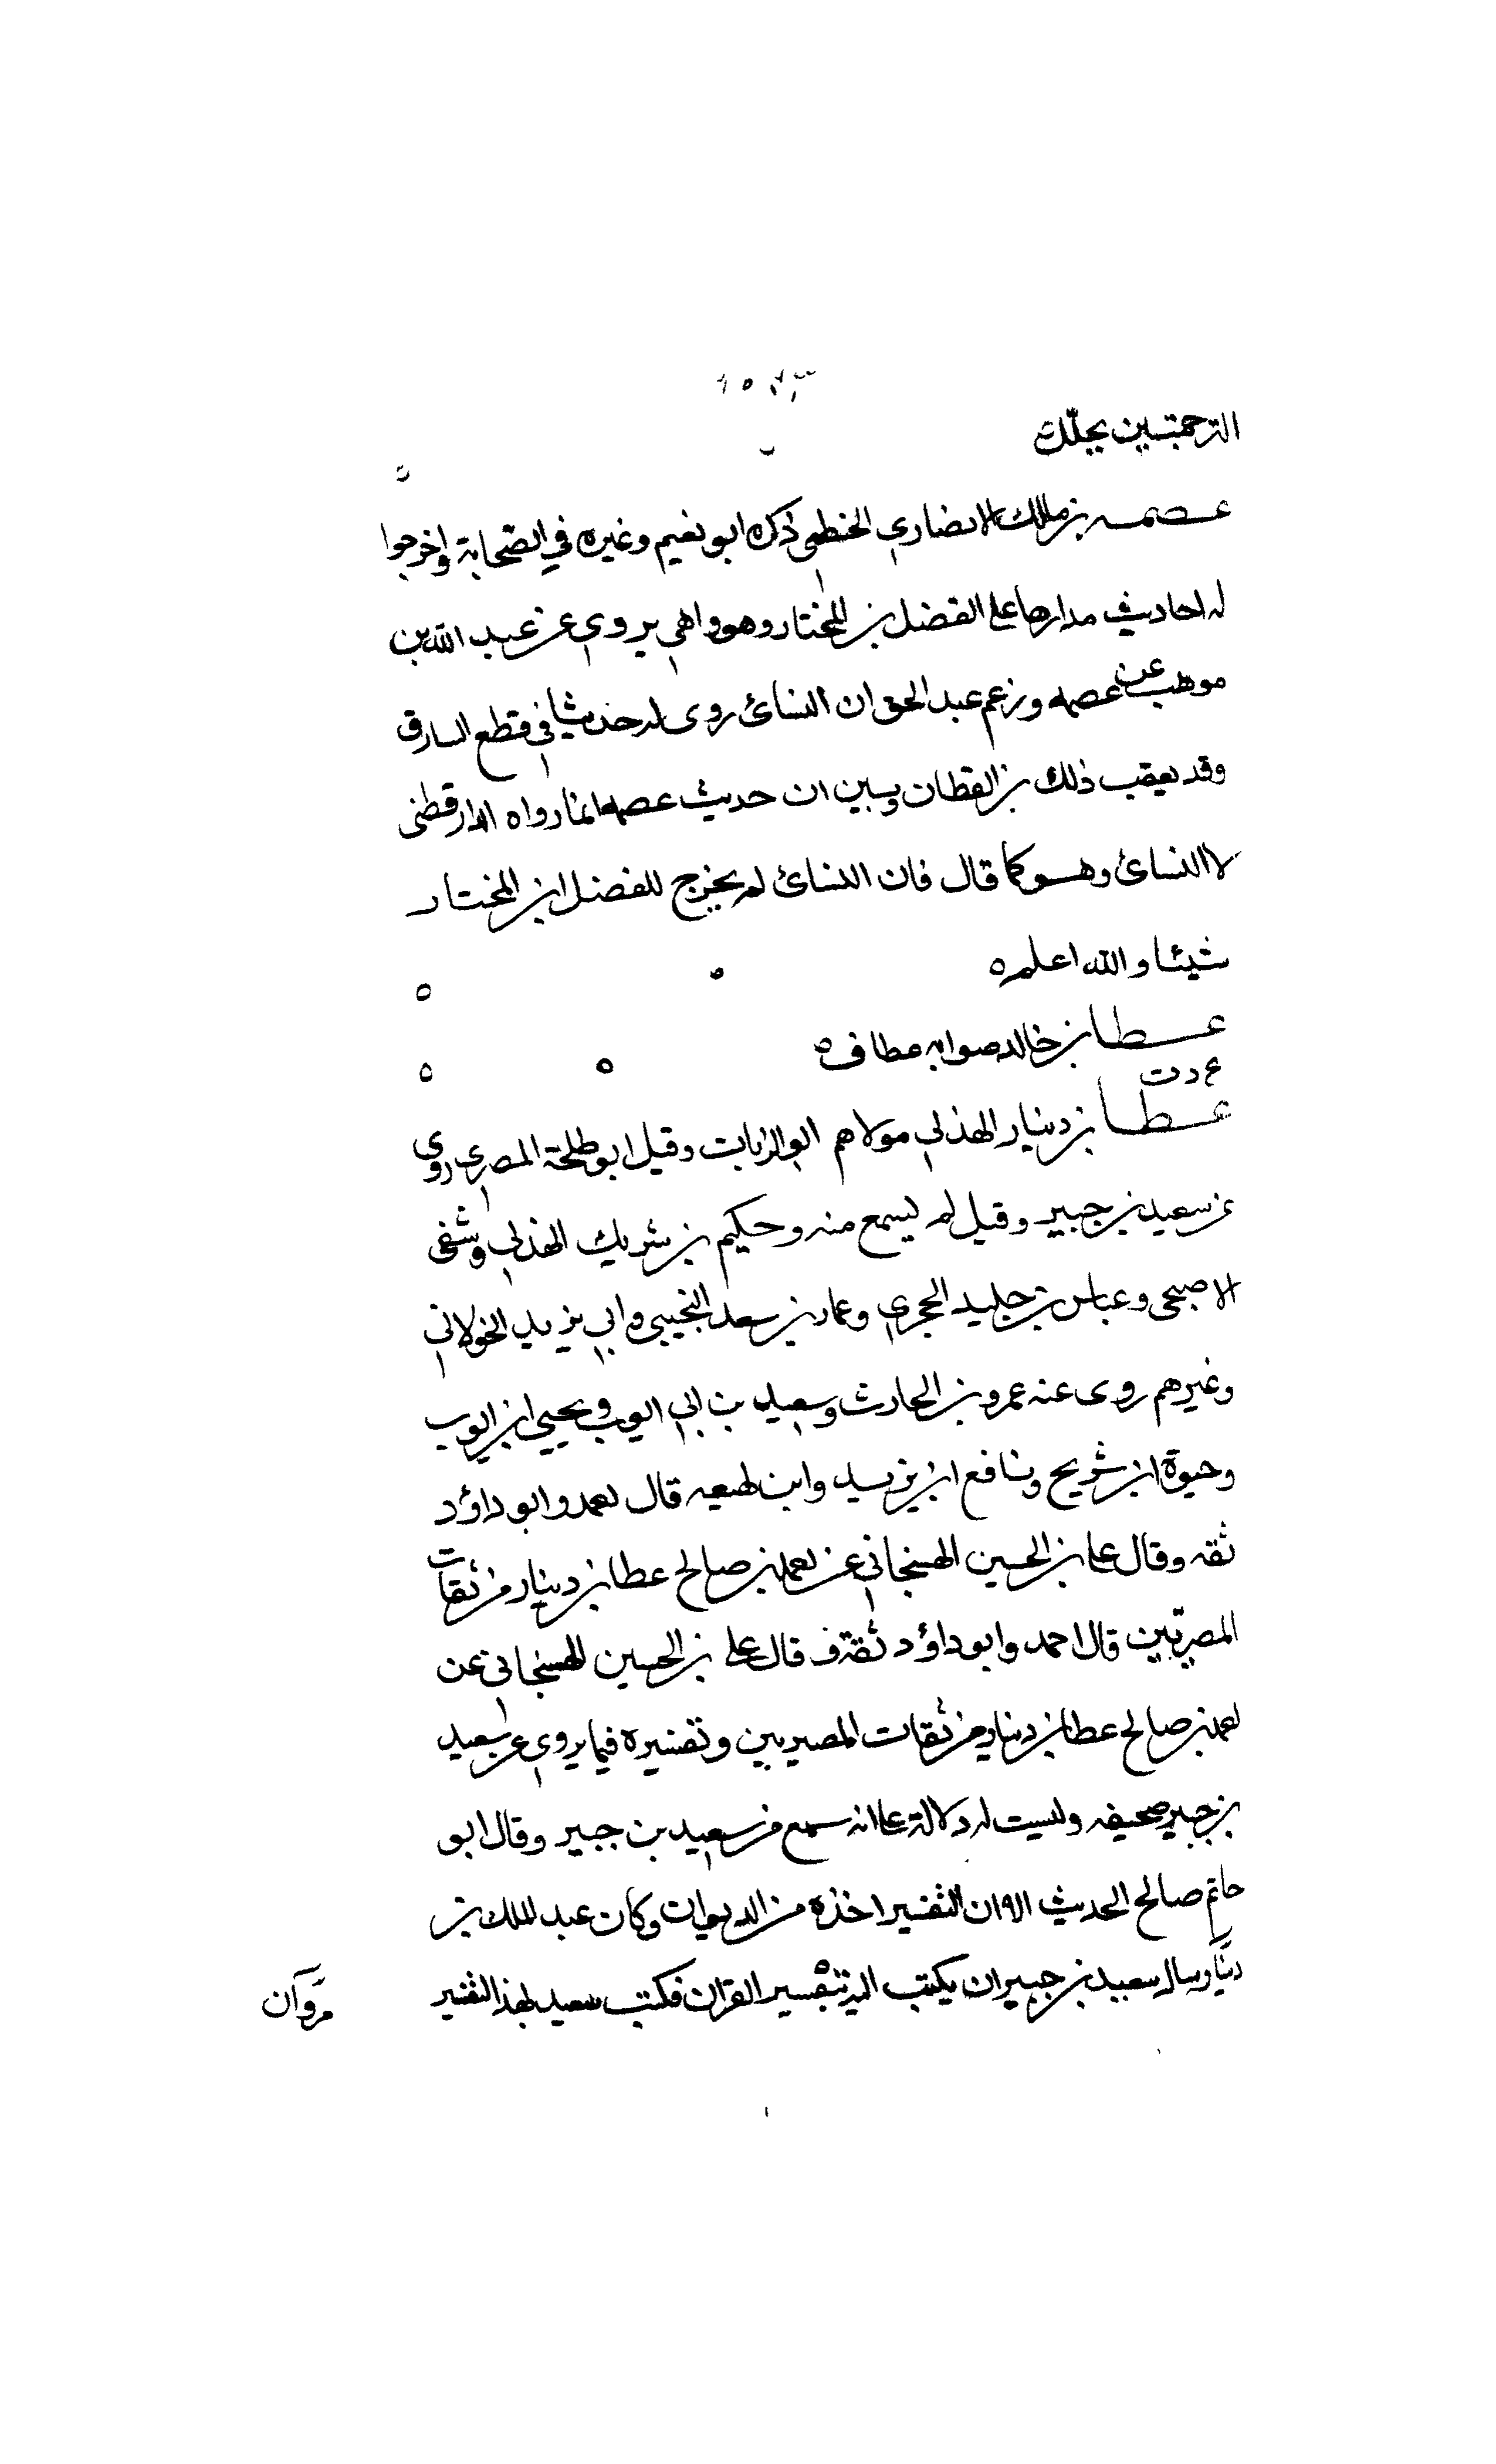 الترجمتين بجلّك
عصمه بن مالك الانصاري الخطمي ذكره ابو نعيم وغيره في الصحابة واخرجوا
له احاديث مدارها على الفضل بن المختار وهو واهي يروي عن عبد الله بن
موهب عن عصمه وزعم عبد الحق ان النسائ روى له حديثا في قطع السارق
وقد تعقب ذلك بن القطان وبين ان حديث عصمه انما رواه الدارقطنى
لا النسائ وهو كما قال فان النسائ لم يخرج للفضل ابن المختار
شيئا والله اعلم ه
عطا بن خالد صوابه عطاف ه
ع د ت
عطا بن دينار الهذلي مولاهم ابو الزيات وقيل ابو طلحة المصري روى
عن سعيد بن جبير وقيل لم يسمع منه وحكيم بن شريك الهذلي وشفى
الاصبحى وعباس بن جليد الحجري وعمار بن سعد التجيبى وابي يزيد الخولاني
وغيرهم روى عنه عمرو بن الحارث وسعيد بن ابي ايوب ويحيي ابن ايوب
وحيوة ابن شريح ونافع ابن يزيد وابن لهيعه قال احمد وابو داؤد
ثقه وقال على بن الحسين الهسنجاني عن احمد بن صالح عطا بن دينار من ثقات
المصريّين قال احمد وابو داؤد ثقة ف قال على بن الحسين الهسنجانى عن
احمد بن صالح عطا بن دينار من ثقات المصريين وتفسيره فيما يروي عن سعيد
بن جبير صحيفه وليست له دلالة على انه سمع من سعيد بن جبير وقال ابو
حاتم صالح الحديث الا ان التفسير اخذه من الديوان وكان عبد الملك بن
سال سعيد بن جبير ان يكتب اليه بتفسير القران فكتب سعيد بهذا التفسير
مروان